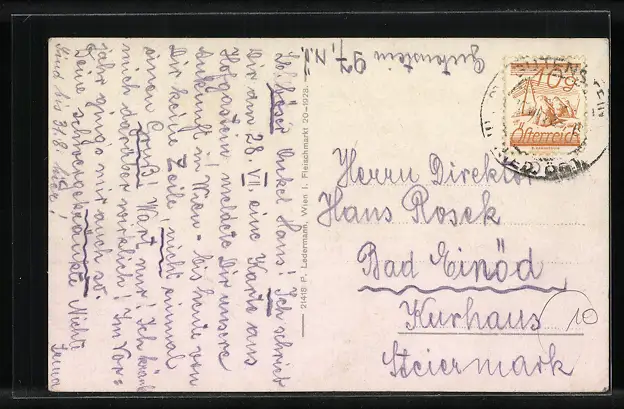 Gutenstein 97, N.Ö.
Lb. böser Onkel Hans! Ich schrieb
Dir am 28. VII eine Karte aus
Hofgastein, meldete Dir unsere
Ankunft in Wien - bis heute von
Dir keine Zeile, nicht einmal
einen Gruß! Wart nur. Ich kränk
mich darüber wirklich! Im Vor=
jahr gings mir auch so.
Deine schwergekränkte Nichte
Sind bis 31.8. hier!
21418 P. Ledermann, Wien I. Fleischmarkt 20-1928.
10 g
Österreich
Herrn Direktor
Hans Rosek
Bad Einöd
Kurhaus
Steiermark
10